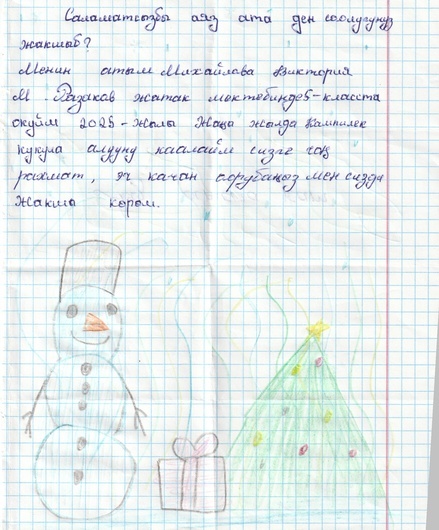 Саламатсызбы аяз ата ден соолугунуз
жакшыб?
Менин атым Михайлова Виктория
М. Разаков жатак мектебинде 5-класста
окуйм 2025-Жылы Жаңа жылда
кукула алууну каалайм сизге чоң
рахмат, эч качан оорубаңыз мен сизди
Жакшы көрөм.